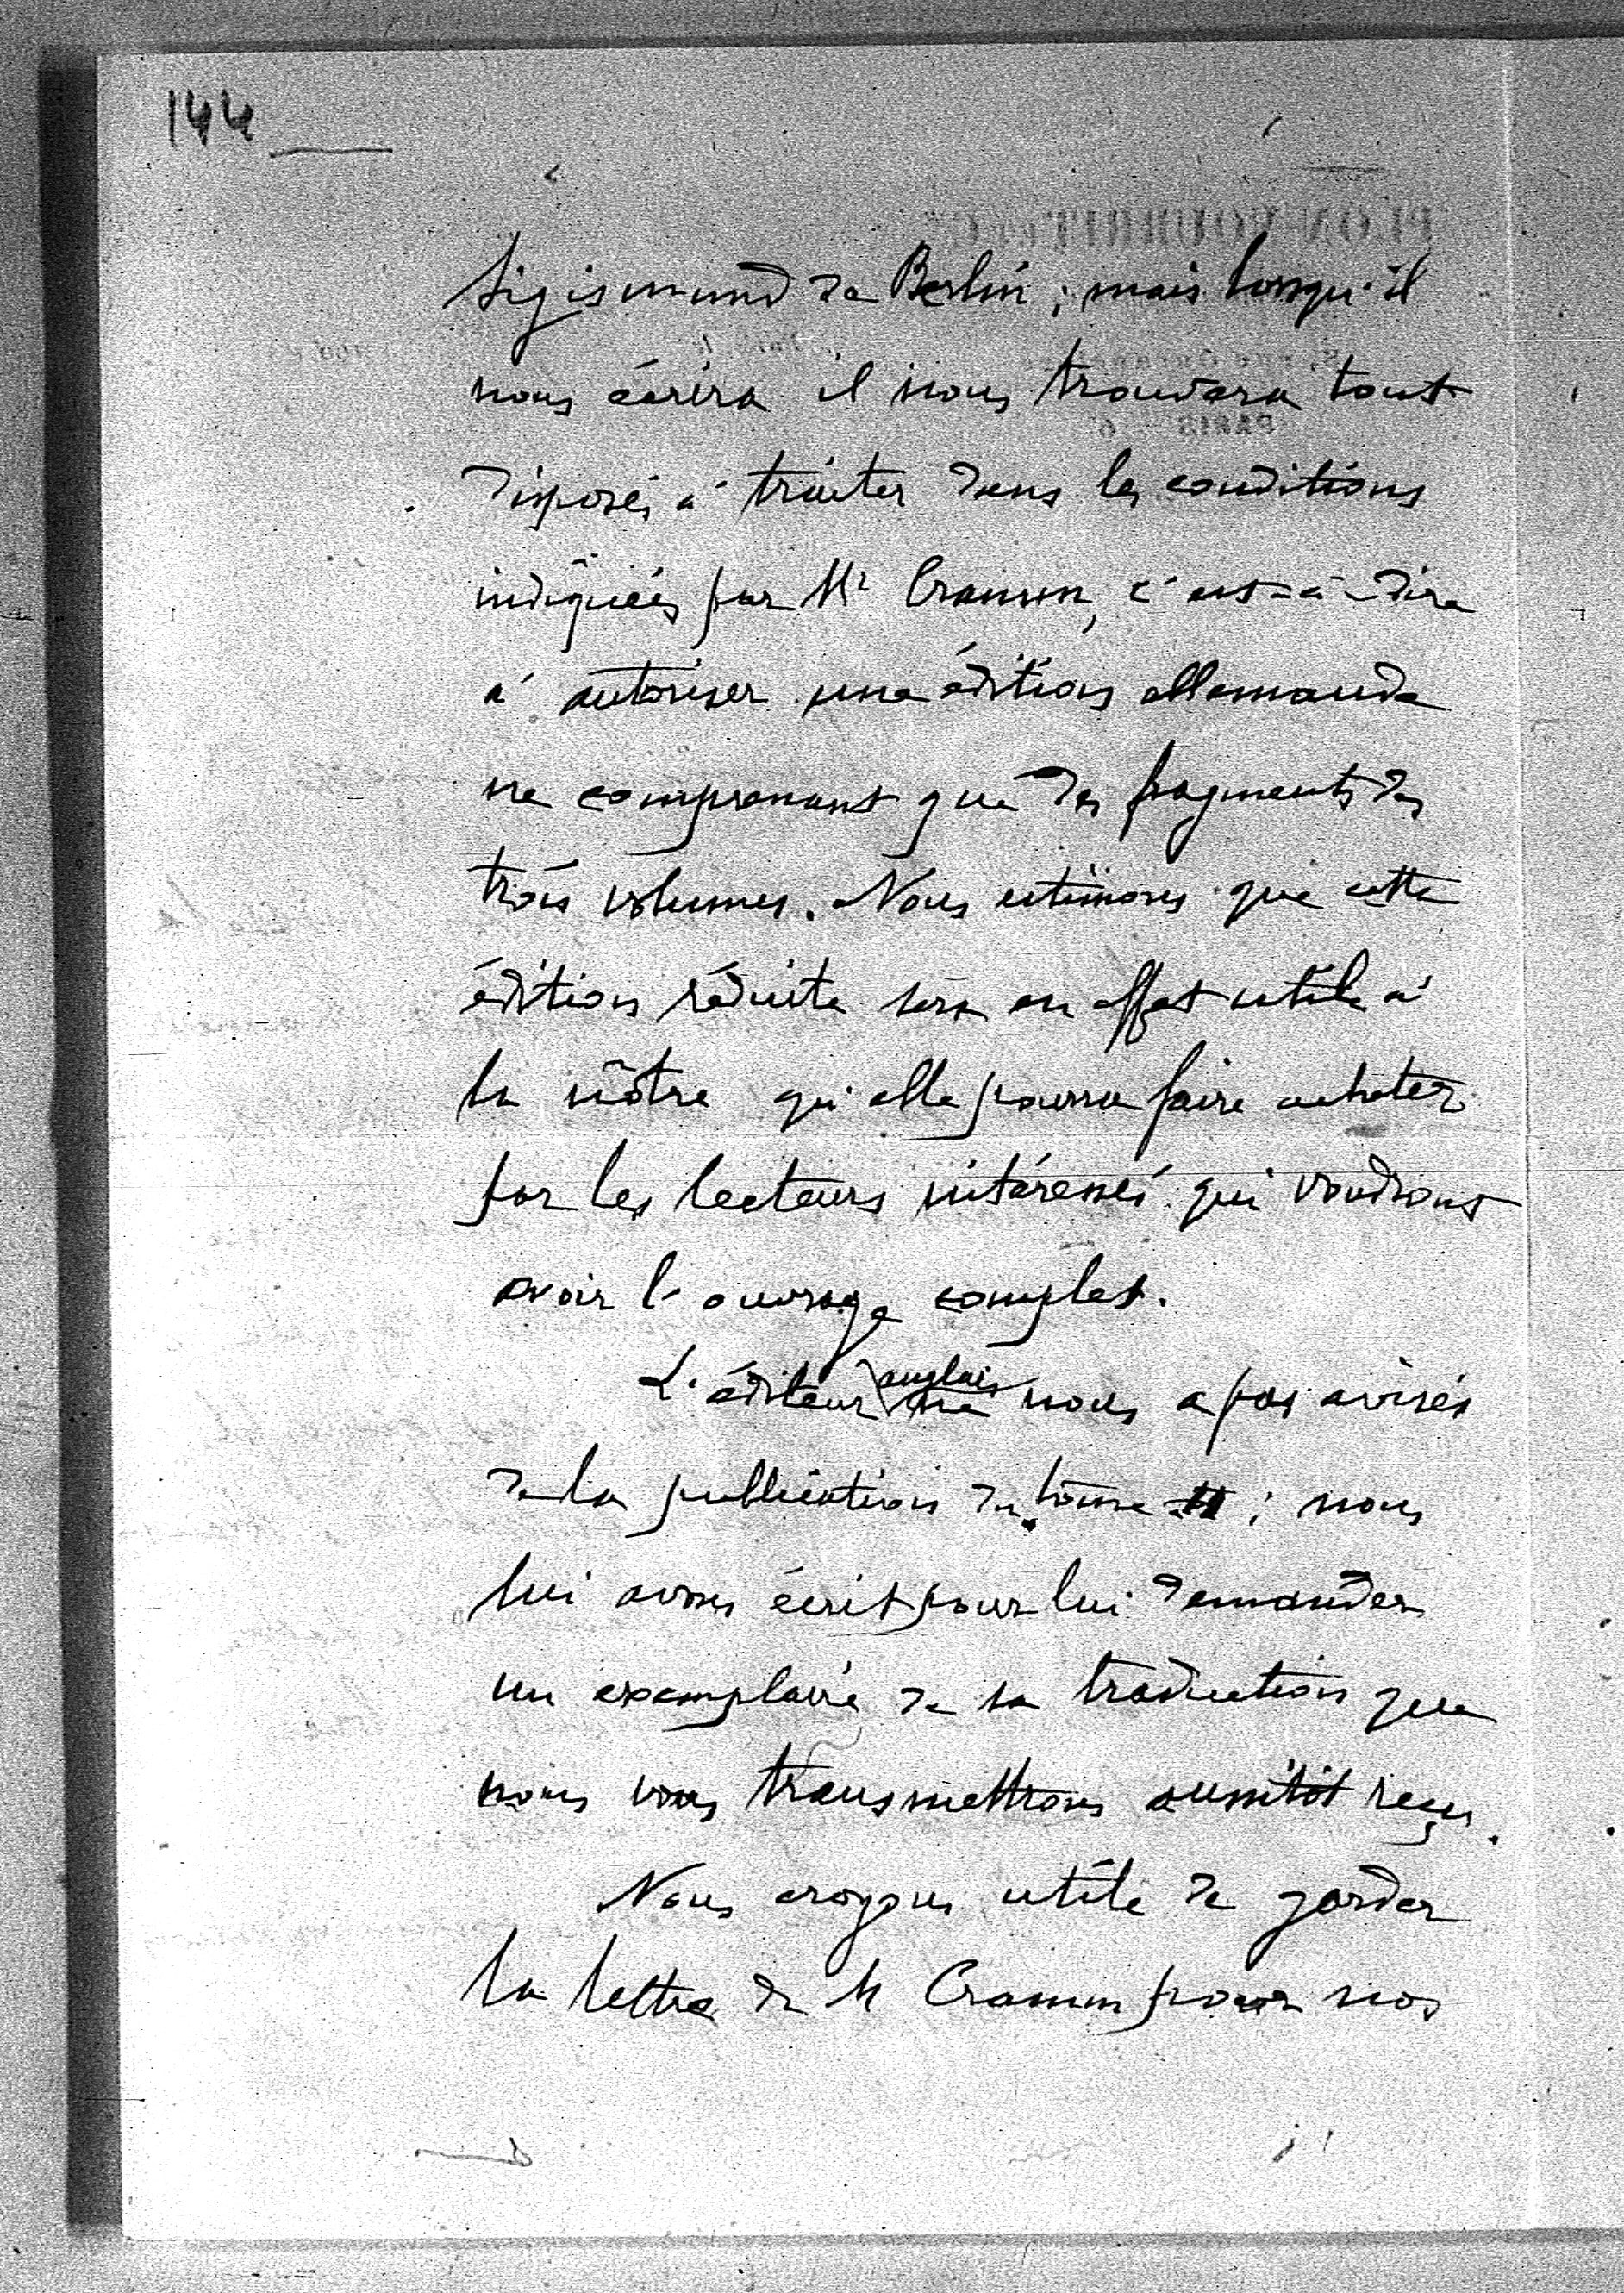 144
Sigismund de Berlin ; mais lorsqu'il
nous écrira il nous trouvera tout
disposés à traiter dans les conditions
indiquées par Mr Cramm, c'est-à-dire
à autoriser une édition allemande
ne comprenant que des fragments des
trois volumes. Nous estimons que cette
édition réduite sera en effet utile à
la nôtre qu'elle pourra faire acheter
par les lecteurs intéressés qui voudront
avoir l'ouvrage complet.
L'éditeur anglais ne nous a pas avisés
de la publication du tome II ; nous
lui avons écrit pour lui demander
un exemplaire de sa traduction que
nous vous transmettrons aussitôt reçu.
Nous croyons utile de garder
la lettre de M Cramm pour nos